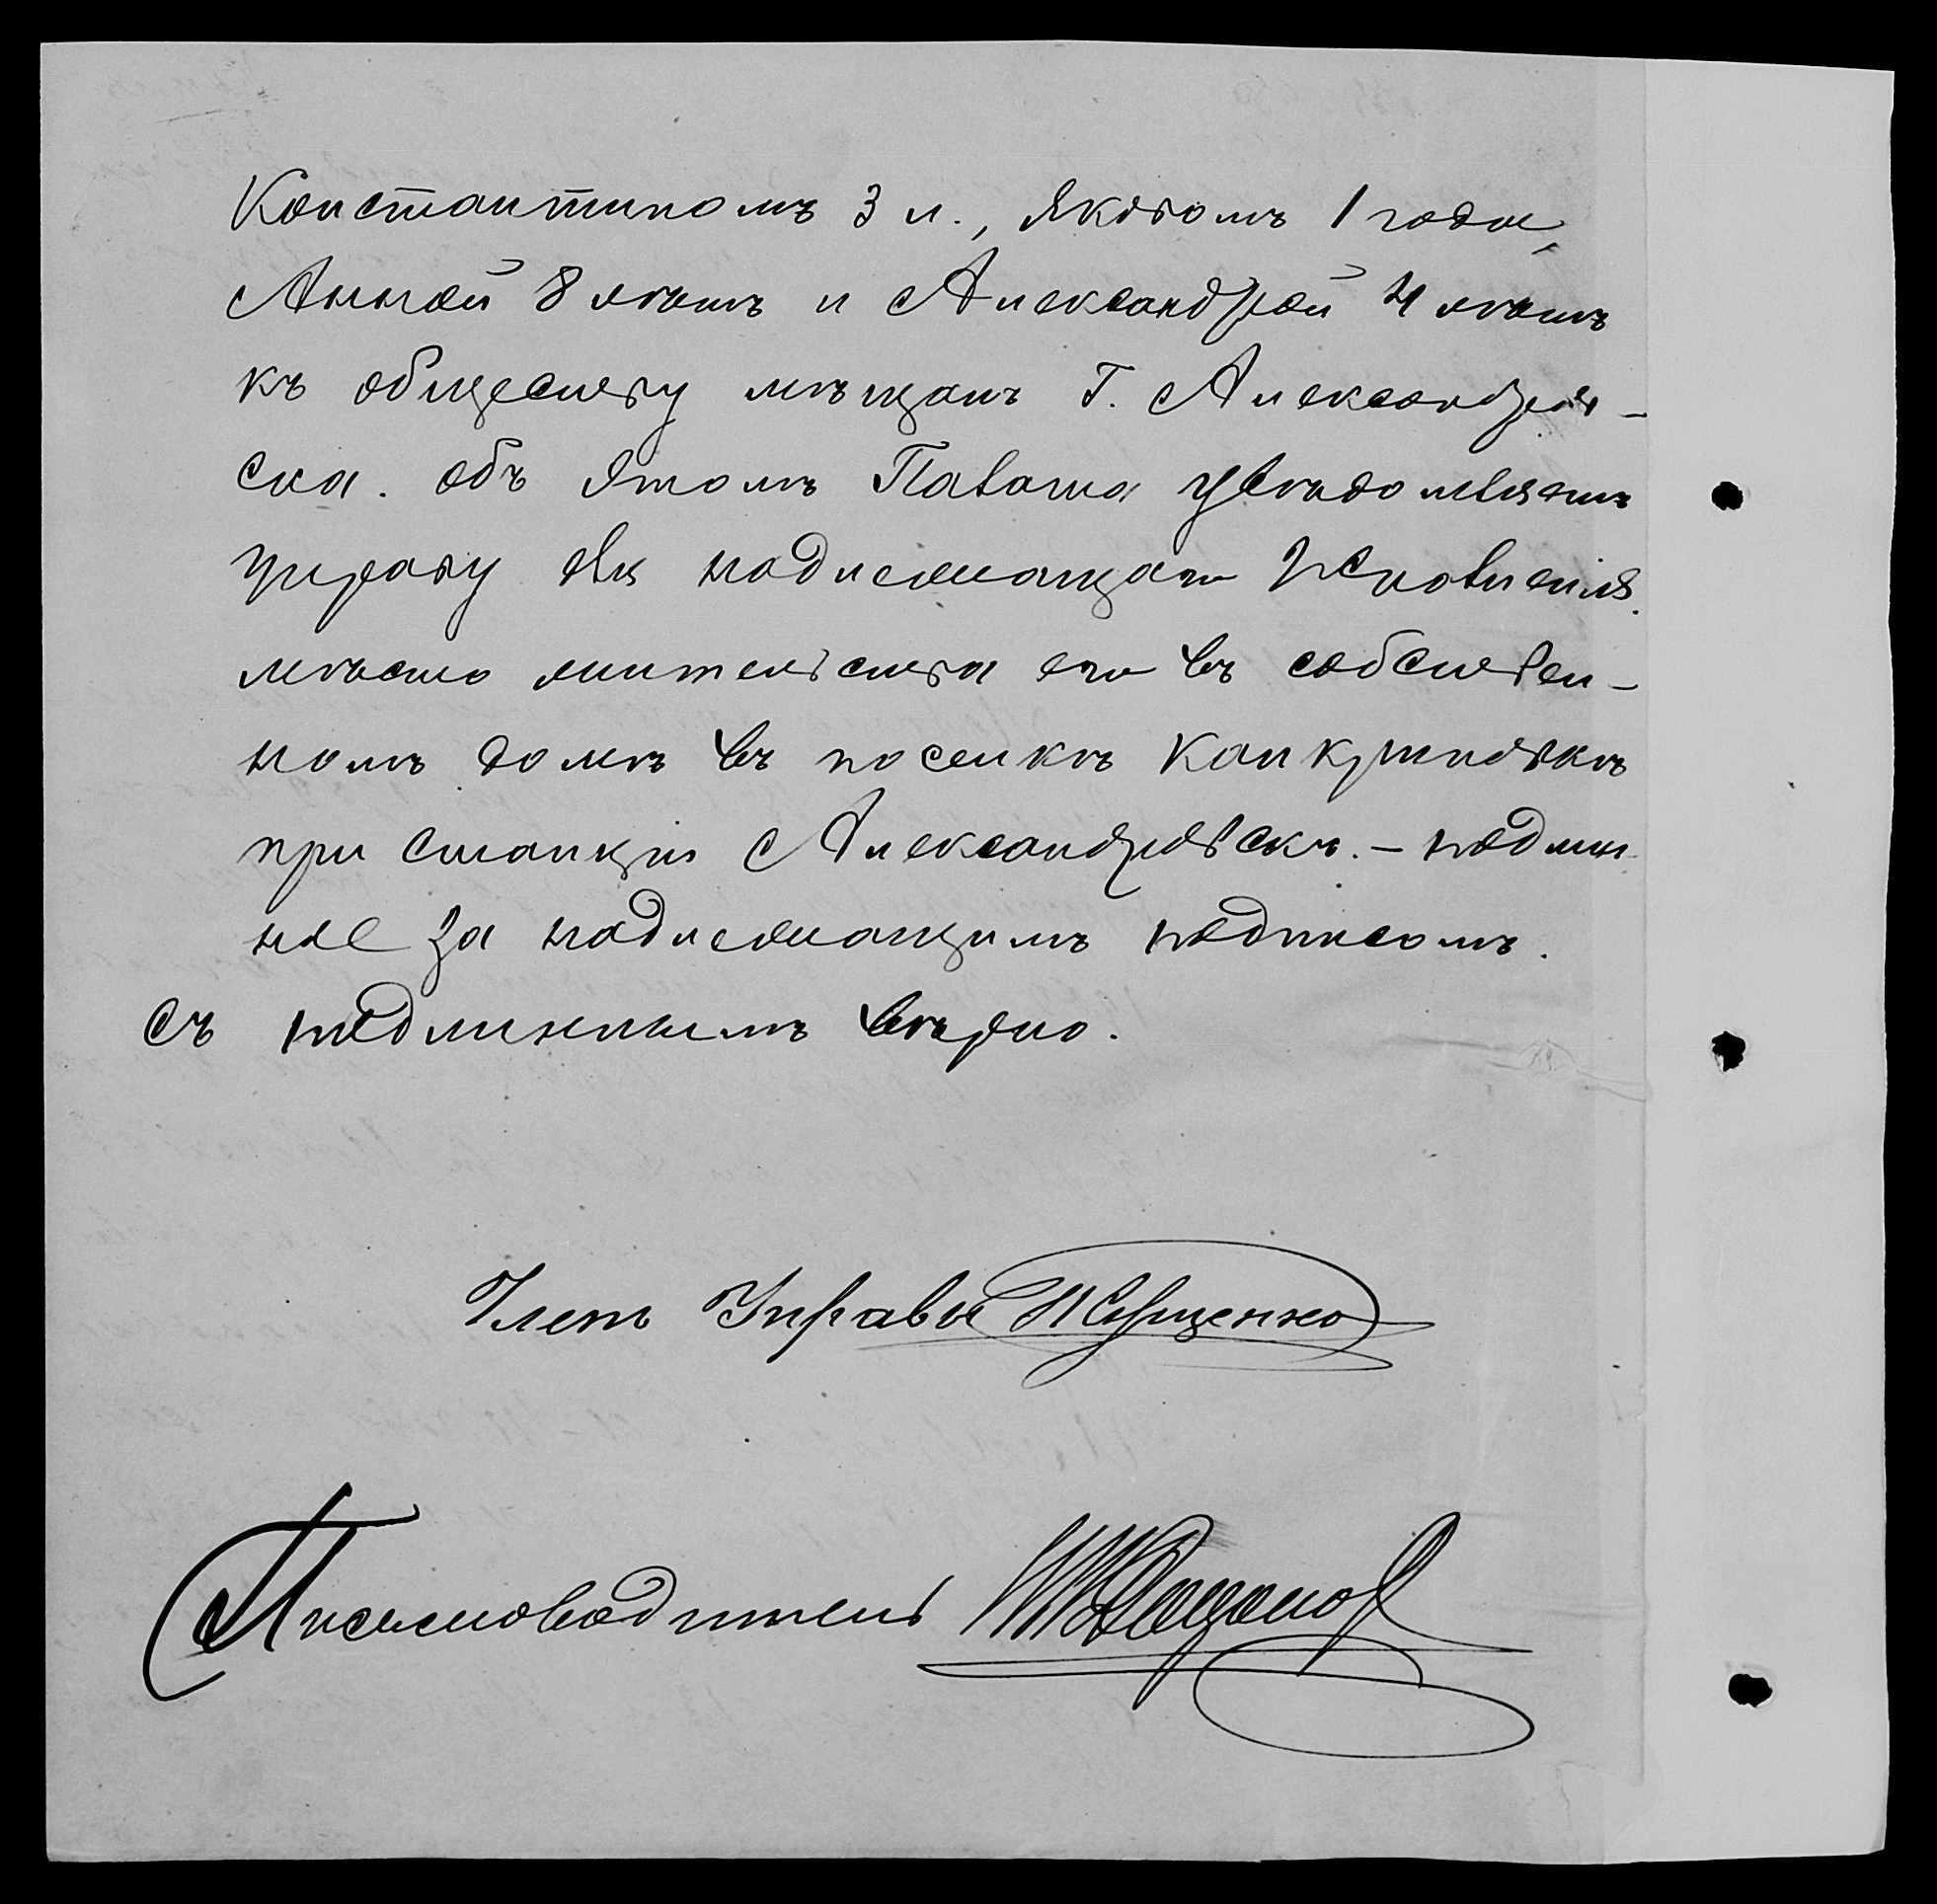 Константиномъ 3 л., Яковомъ 1 года,
Анной 8 лѣтъ и Александрой 4 лѣтъ
къ обществу мѣщанъ г. Александров-
ска. объ этомъ Палата увѣдомляетъ
управу для надлежащаго исполненія.
мѣсто жительства его въ собствен-
номъ домѣ въ поселкѣ
при станціи Александровскъ. – подлин
ное за надлежащимъ подписомъ.
съ подлиннымъ вѣрно.
Членъ Управы
Письмоводитель